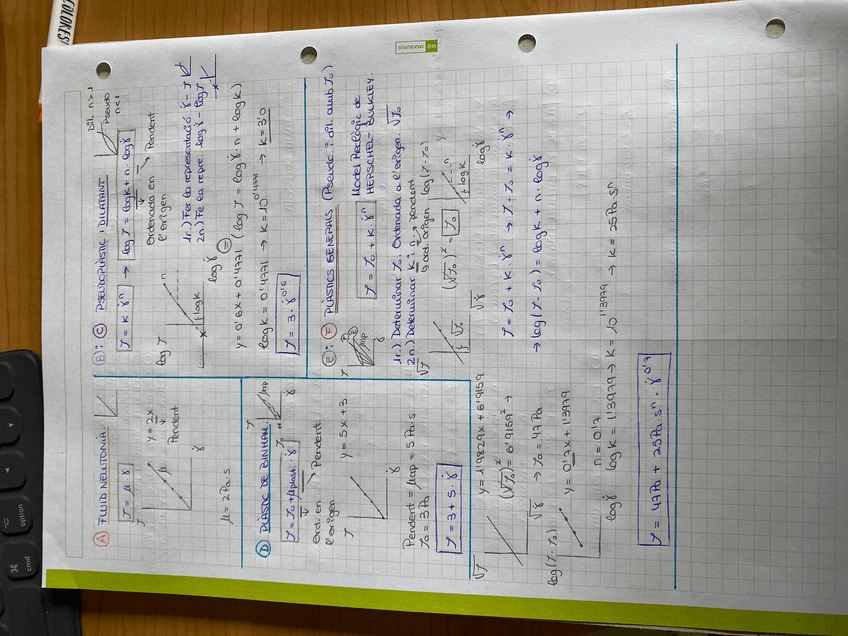 COLORES
Ⓐ FLUID NEWTONIÀ
τ = μ · γ̇
τ
y = 2x
Pendent
μ
γ̇
μ = 2 Pa·s
Ⓑ i Ⓒ PSEUDOPLÀSTIC i DILATANT
Dil. n>1
Pseudo n<1
τ = K γ̇ⁿ → log τ = log K + n · log γ̇
Ordenada en l'origen
Pendent
log τ
n
log K
log γ̇
1r.) Fer la representació γ̇ - τ
2n) Fe la repre. log γ̇ - log τ
y = 0'6x + 0'4771 (log τ = log γ̇ · n + log K)
log K = 0'4771 → K = 10^0'4771 → K = 3'0
τ = 3 · γ̇^0'6
Ⓓ PLÀSTIC DE BINHAM
τ = τ₀ + μplast. · γ̇
Ord. en l'origen
Pendent
τ
y = 5x + 3
γ̇
Pendent = μap = 5 Pa·s
τ₀ = 3 Pa
τ = 3 + 5 · γ̇
Ⓔ i Ⓕ PLÀSTICS GENERALS (Pseudo. i dil. amb τ₀)
τ = τ₀ + K γ̇ⁿ
Model Reològic de HERSCHEL-BULKLEY
1r.) Determinar τ₀. Ordenada a l'origen. √τ₀
2n.) Determinar K i n → pendent
ord. origen log(τ-τ₀)
√τ
√τ₀
√γ̇
(√τ₀)² = τ₀
n
log K
log γ̇
√τ
y = 1'9829x + 6'9159
(√τ₀)² = 6'9159² →
→ τ₀ = 47 Pa
√γ̇
τ = τ₀ + K γ̇ⁿ → τ - τ₀ = K · γ̇ⁿ →
→ log(τ-τ₀) = log K + n · log γ̇
log(τ-τ₀)
y = 0'7x + 1'3979
log γ̇
n = 0'7
log K = 1'3979 → K = 10^1'3979 → K = 25 Pa sⁿ
τ = 47 Pa + 25 Pa sⁿ · γ̇^0'7
MIQUELRIUS
option
cmd